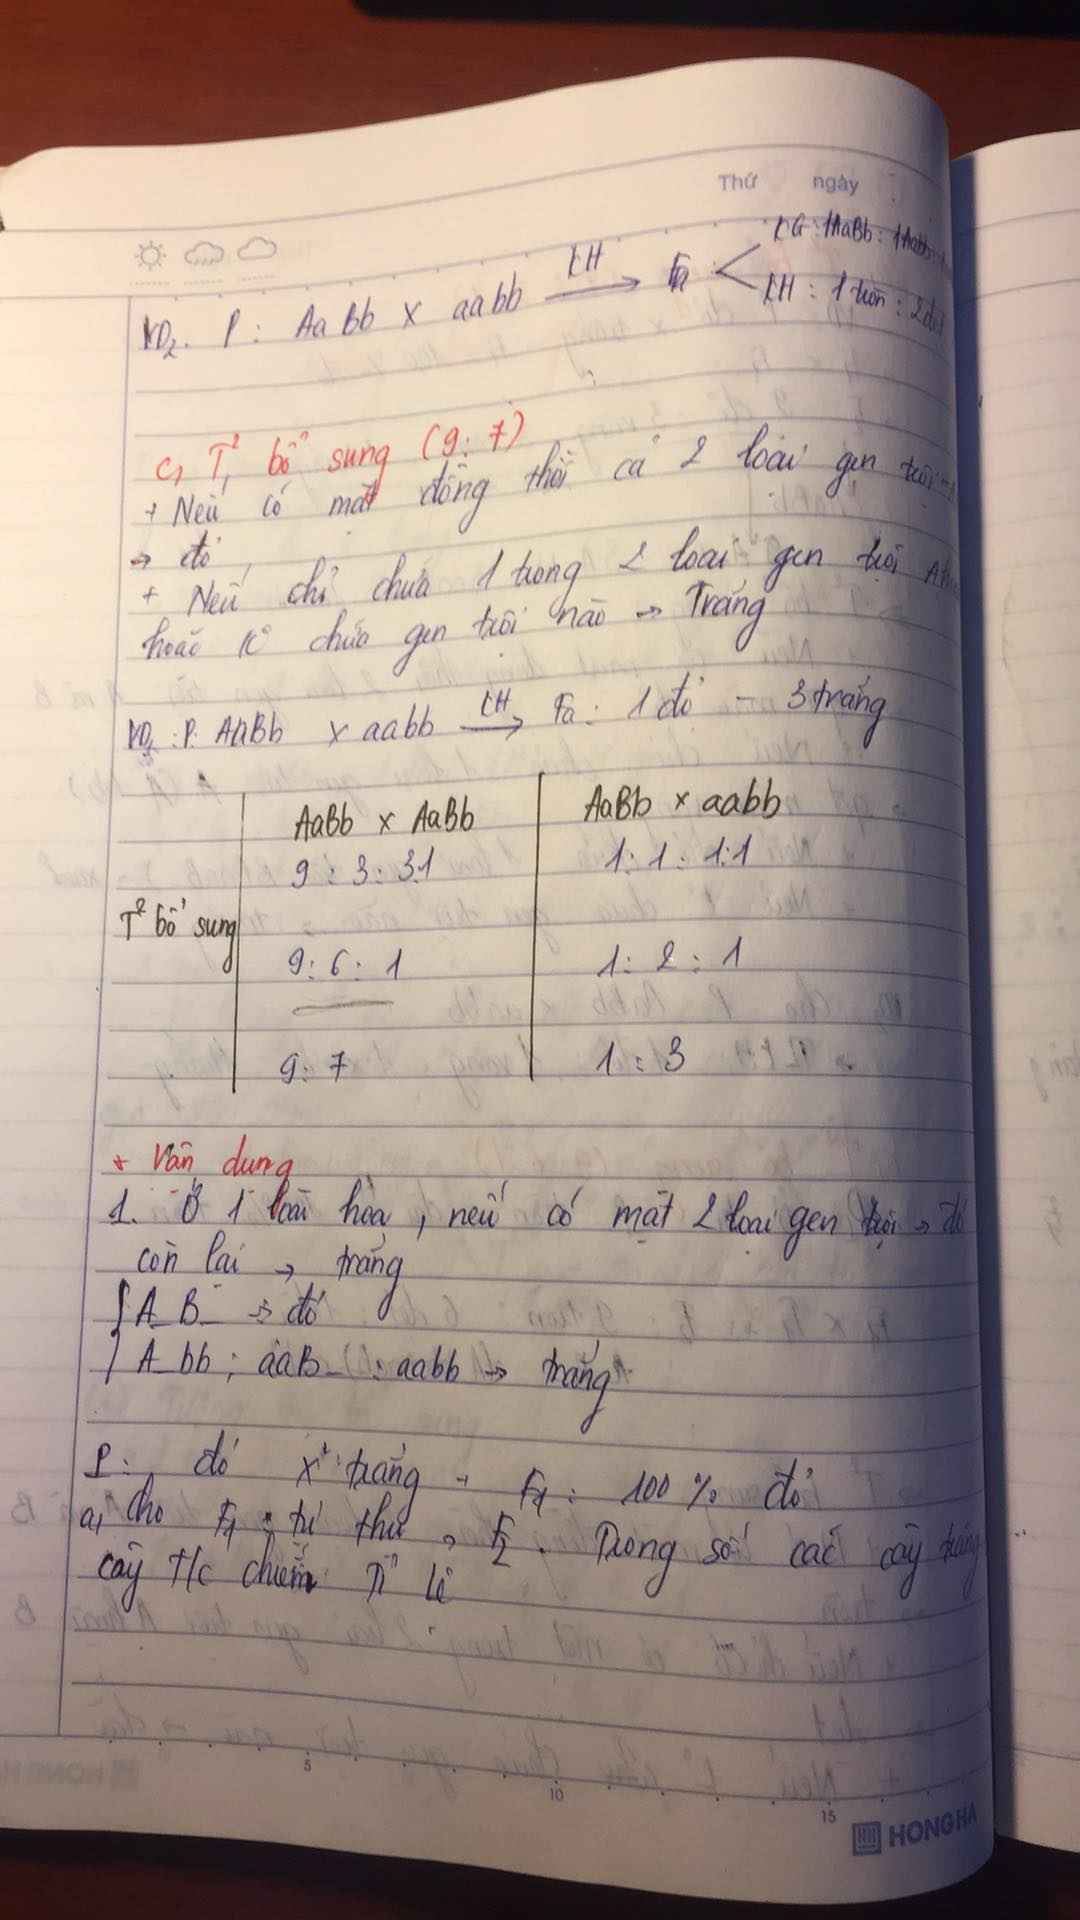 Thứ ngày
KG: 1AaBb: 1Aabb
VD2. P: AaBb x aabb KH → Fa
KH: 1 tròn: 2 dẹt
c, T² bổ sung (9:7)
+ Nếu có mặt đồng thời cả 2 loại gen trội
→ đỏ
+ Nếu chỉ chứa 1 trong 2 loại gen trội A
hoặc K° chứa gen trội nào → Trắng
VD: P: AaBb x aabb KH → Fa: 1 đỏ - 3 trắng
AaBb x AaBb AaBb x aabb
9:3:3:1 1:1:1:1
T² bổ sung
9:6:1 1:2:1
9:7 1:3
+ Vận dụng
1. Ở 1 loài hoa, nếu có mặt 2 loại gen trội → đỏ
còn lại → trắng
A_B_ → đỏ
A_bb; aaB_; aabb → trắng
P: đỏ x trắng → F1: 100% đỏ
a, Cho F1 tự thụ → F2. Trong số các cây trắng
cây T/c chiếm Tỉ lệ
5
10
15
HONG HA